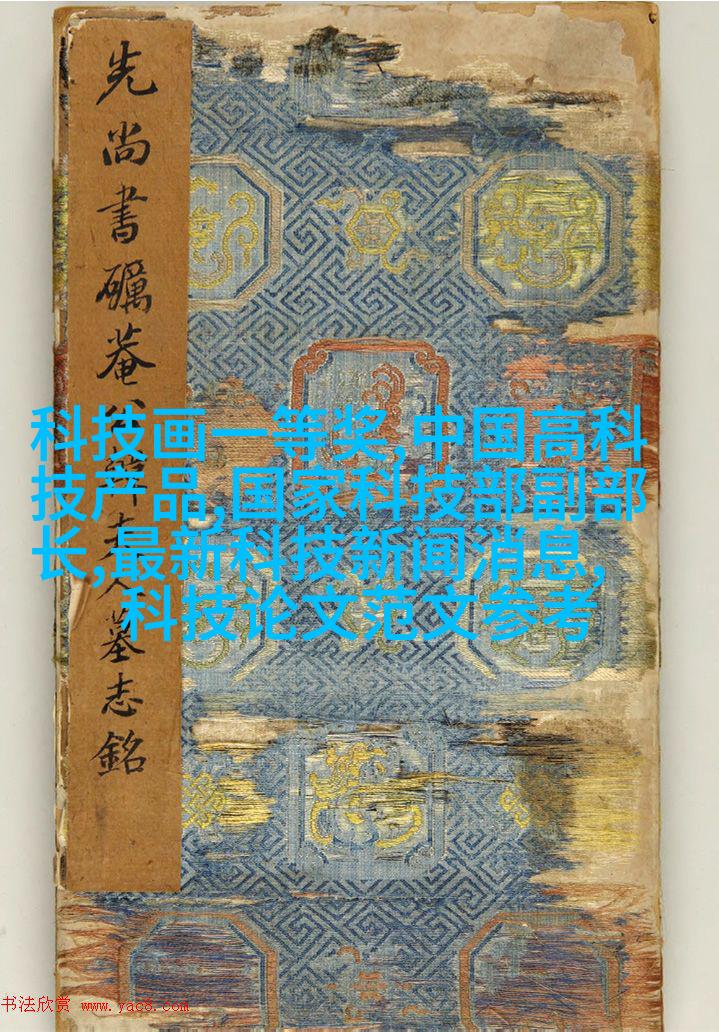 先尚書礪菴夫人墓志銘
科技画一等奖,中国高科
技产品,国家科技部副部
长,最新科技新闻消息,
科技论文范文参考
书法欣赏 www.yac8.com